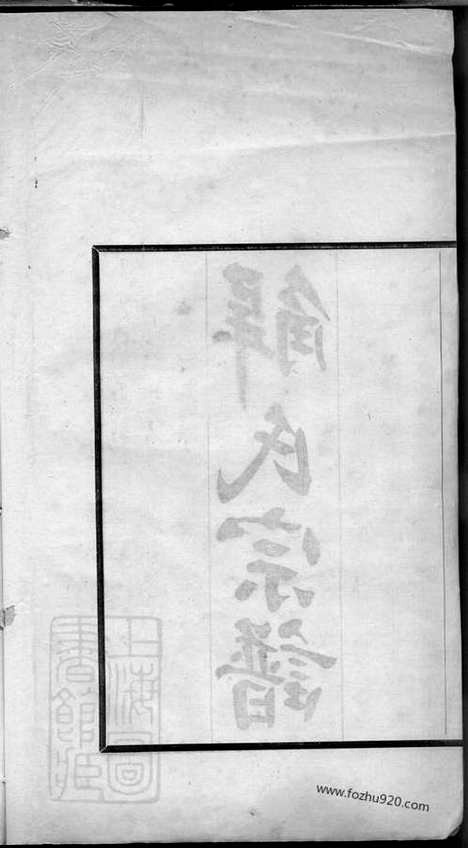 解氏宗譜
上海圖
書館藏
www.fozhu920.com